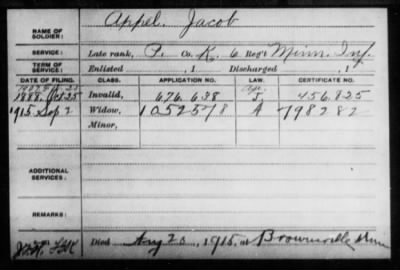 Appel, Jacob
NAME OF SOLDIER:
SERVICE: Late rank, P. Co. K, 6 Reg't Minn. Inf.
TERM OF SERVICE: Enlisted , 1 Discharged , 1
DATE OF FILING. CLASS. APPLICATION NO. LAW. CERTIFICATE NO.
1888, Oct 25 Invalid, 676.638 J, 456.825
1915 Sep 2 Widow, 1052578 A 798282
Minor,
ADDITIONAL SERVICES:
REMARKS:
Died Aug 20, 1915, at Brownsville Minn